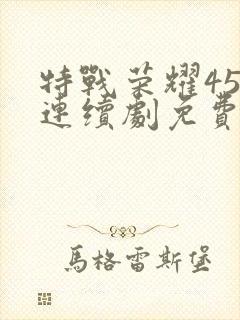 特戰荣耀45
連續劇免費
馬格雷斯堡